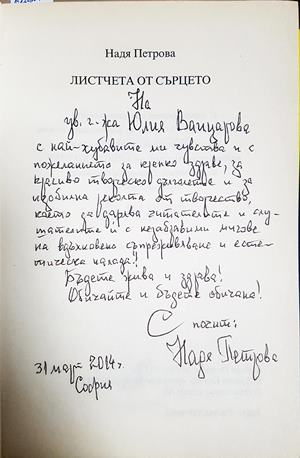 Надя Петрова
ЛИСТЧЕТА ОТ СЪРЦЕТО
На
ув. г-жа Юлия Вапцарова
с най-хубавите ми чувства и с
пожеланието за крепко здраве, за
красиво творческо дълголетие и за
изобилна реколта от творчество,
което задарява читателите и слу-
шателите и с незабравими мигове
на вдъхновено съпреживяване и есте-
тическа наслада!
Бъдете жива и здрава!
Обичайте и бъдете обичана!
С почит:
Надя Петрова
31 март 2014г.
София